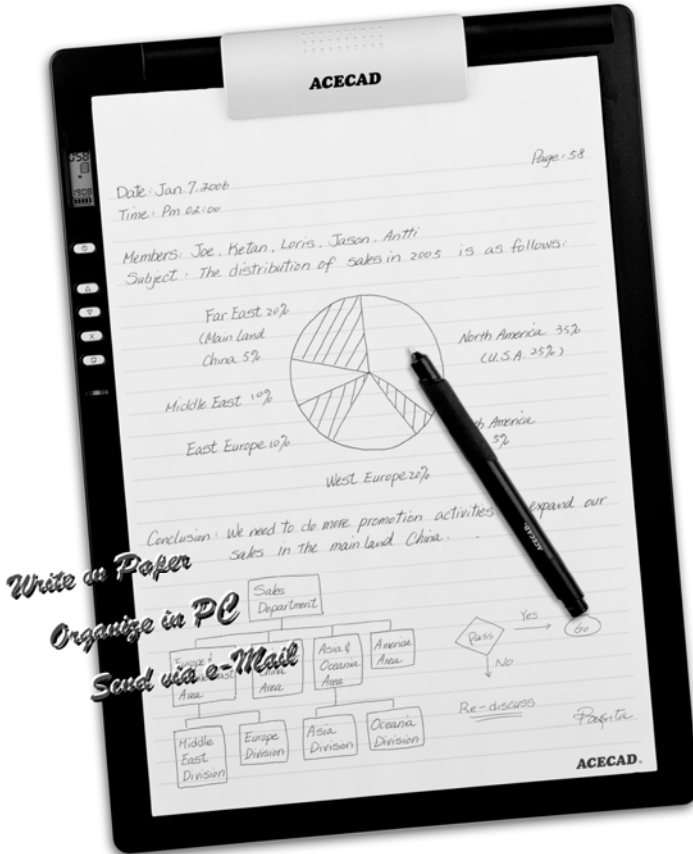 ACECAD
Page: 58
058
1908
Date: Jan. 7. 2006
Time: Pm 02:00
Members: Joe, Ketan, Loris, Jason, Antti
Subject: The distribution of sales in 2005 is as follows:
Far East 20%
(Main Land
China 5%
North America 35%
(U.S.A. 25%)
Middle East 10%
America
5%
East Europe 10%
West Europe 20%
Conclusion: We need to do more promotion activities expand our
sales in the main land China.
Write on Paper
Organize in PC
Send via e-Mail
Sales
Department
Area
Area
Asia &
Oceania
Area
America
Area
Middle
East
Division
Europe
Division
Asia
Division
Oceania
Division
Pass
Yes
Go
No
Re-discuss
ACECAD
ACECAD